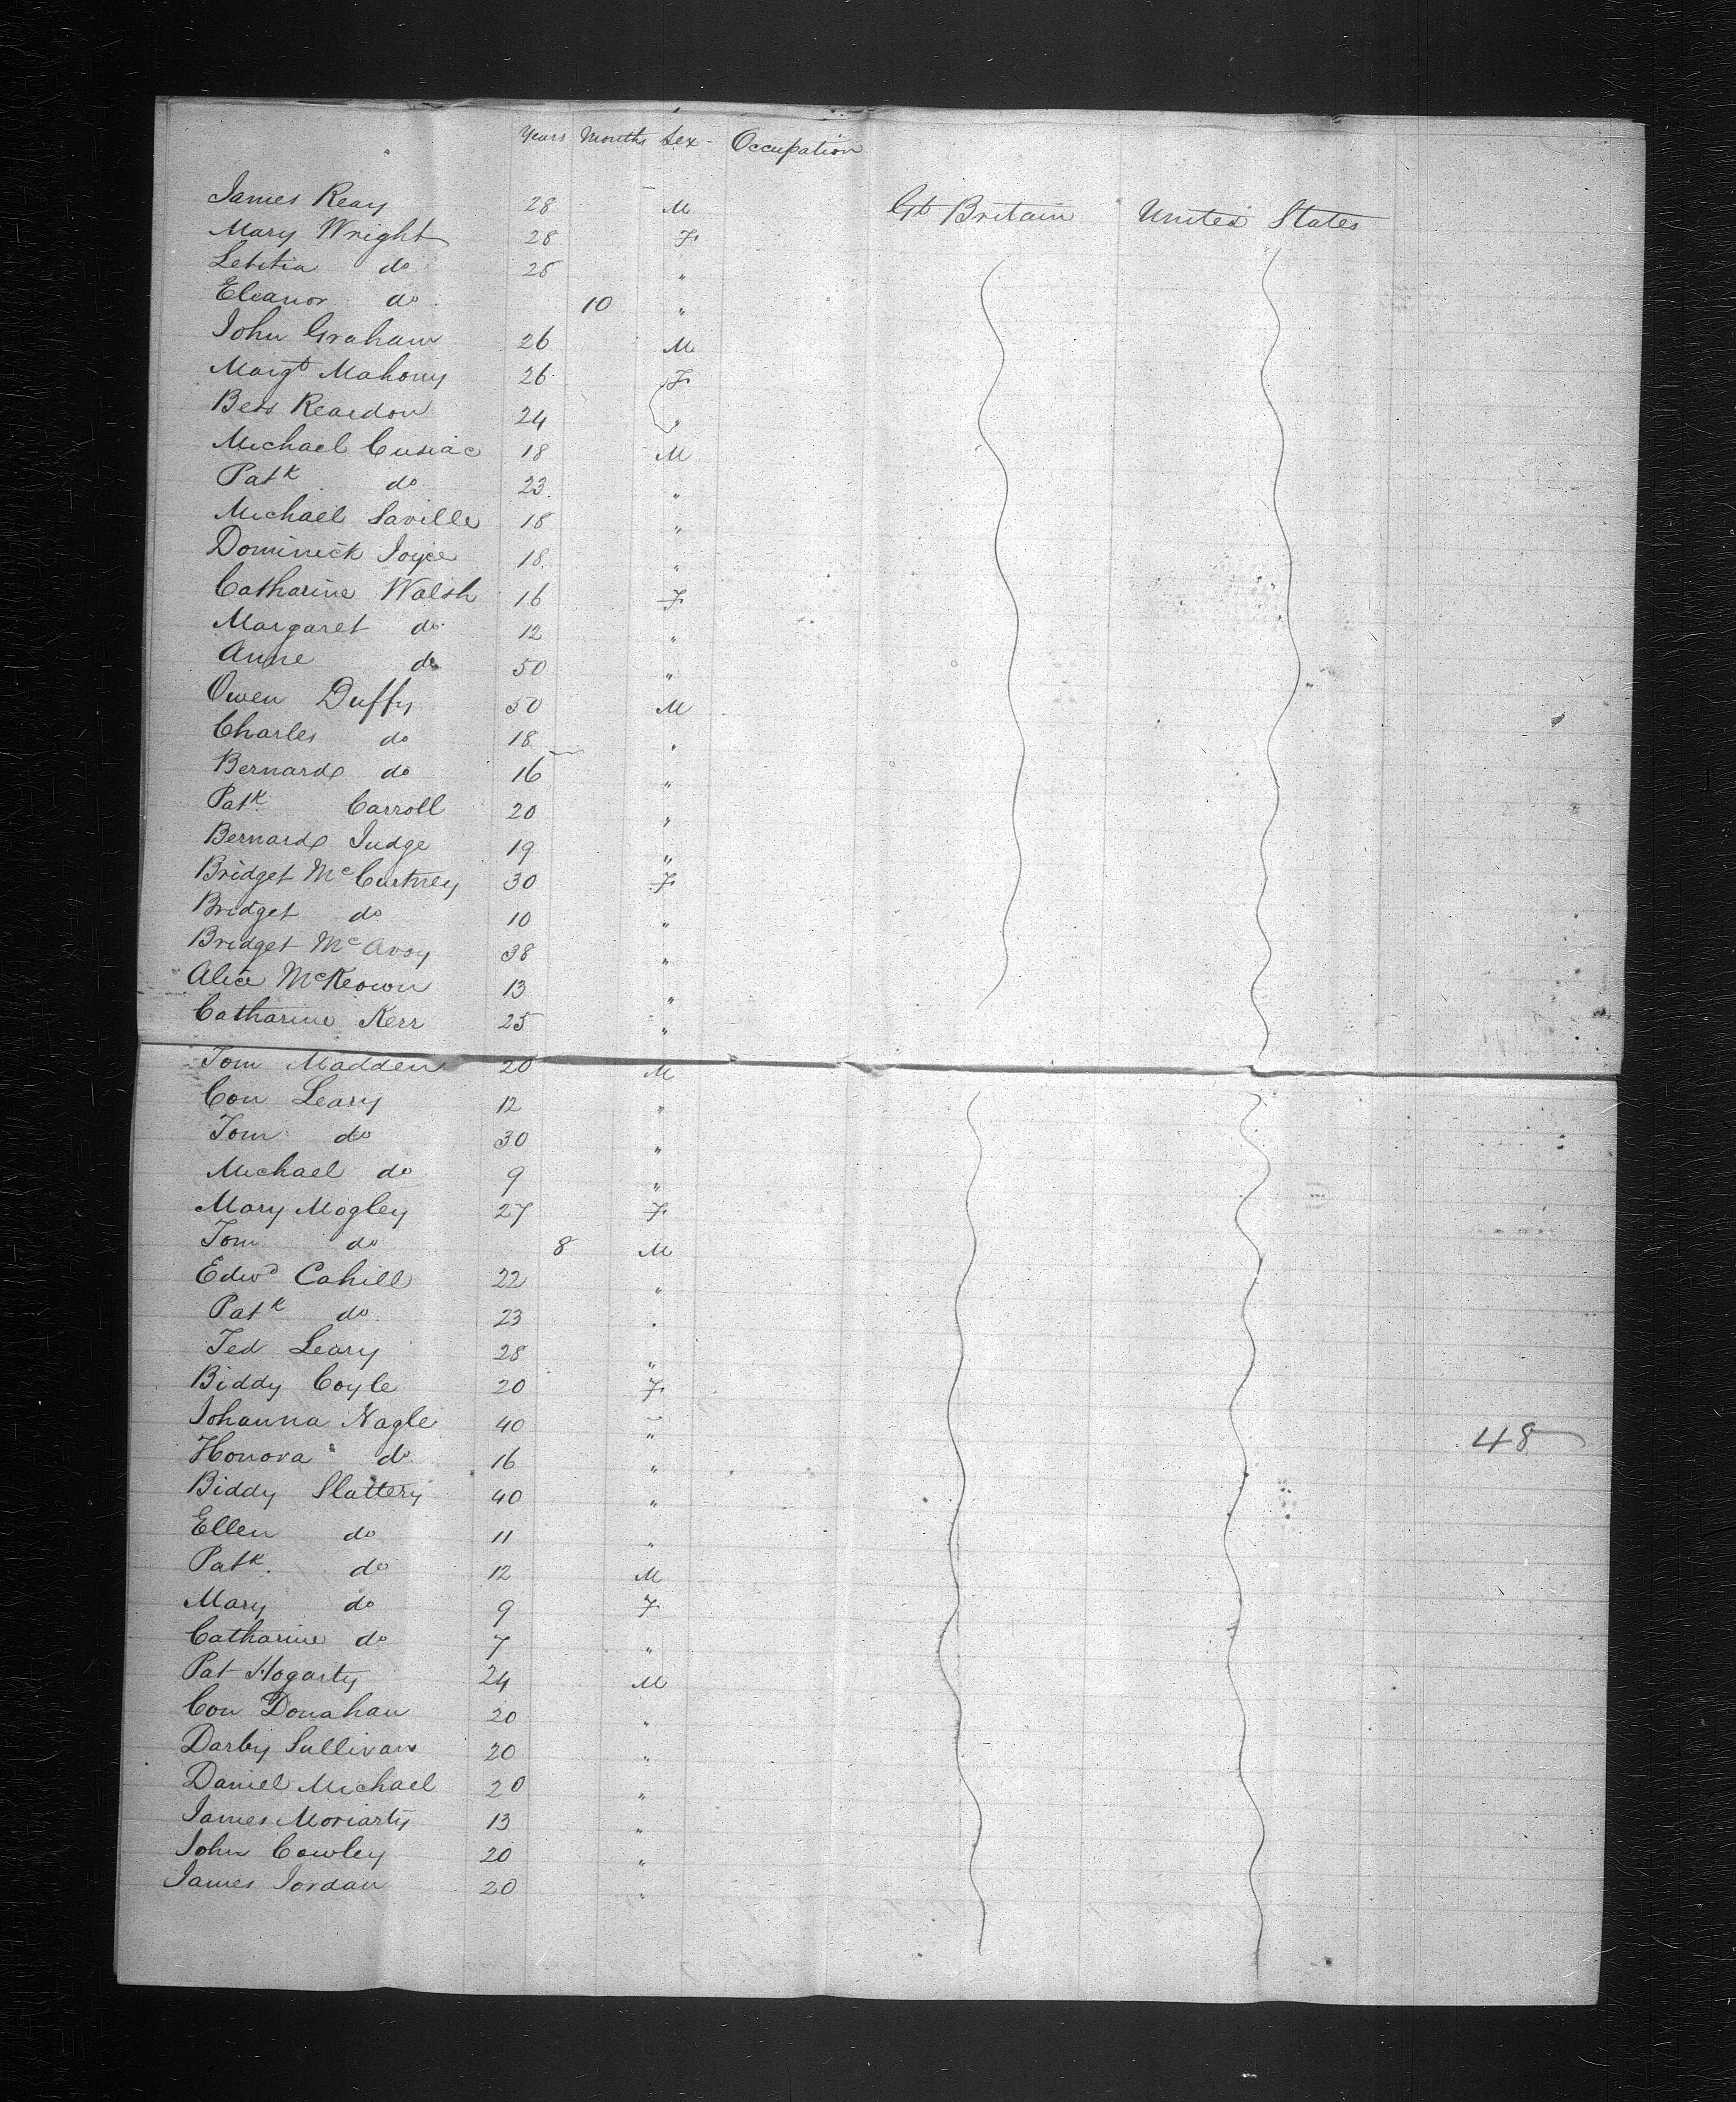 Years Months Sex Occupation
James Reay 28 M Gt Britain United States
Mary Wright 28 F
Letitia do 25 "
Eleanor do 10 "
John Graham 26 M
Margt Mahony 26 F
Bess Reardon 24 "
Michael Cusiac 18 M
Patk do 23 "
Michael Saville 18 "
Dominick Joyce 18 "
Catharine Walsh 16 F
Margaret do 12 "
Anne do 50 "
Owen Duffy 50 M
Charles do 18 "
Bernard do 16 "
Patk Carroll 20 "
Bernard Judge 19 "
Bridget McCurtney 30 F
Bridget do 10 "
Bridget McAvoy 38 "
Alice McKeown 13 "
Catharine Kerr 25 "
Tom Madden 20 M
Con Leary 12 "
Tom do 30 "
Michael do 9 "
Mary Mogley 27 F
Tom do 8 M
Edwd Cahill 22 "
Patk do 23 "
Ted Leary 28 "
Biddy Coyle 20 F
Johanna Nagle 40 "
Honora do 16 " 48
Biddy Slattery 40 "
Ellen do 11 "
Patk. do 12 M
Mary do 9 F
Catharine do 7 "
Pat Hogarty 24 M
Con Donahan 20 "
Darby Sullivan 20 "
Daniel Michael 20 "
James Moriarty 13 "
John Cowley 20 "
James Jordan 20 "